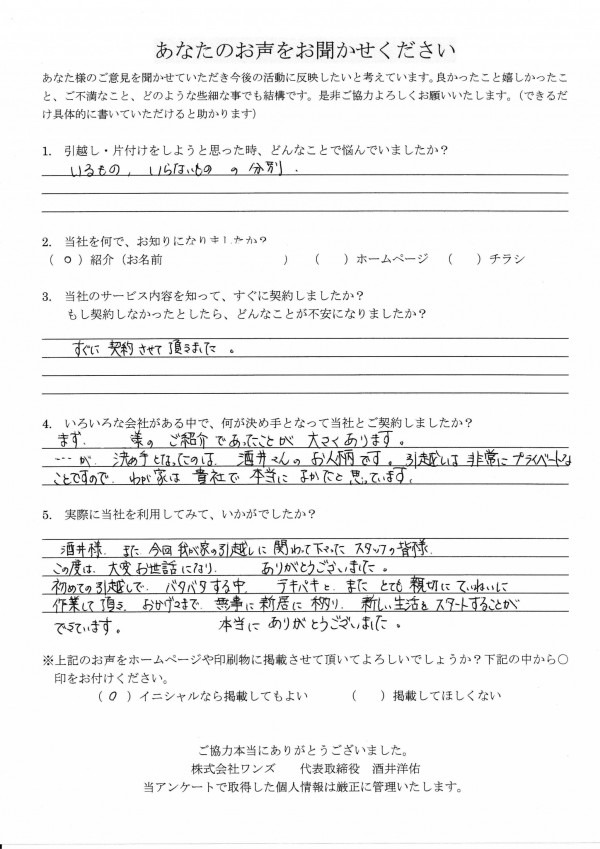 あなたのお声をお聞かせください
あなた様のご意見を聞かせていただき今後の活動に反映したいと考えています。良かったこと嬉しかったこ
と、ご不満なこと、どのような些細な事でも結構です。是非ご協力よろしくお願いいたします。（できるだ
け具体的に書いていただけると助かります）
1. 引越し・片付けをしようと思った時、どんなことで悩んでいましたか？
いるもの，いらないもの の 分別．
2. 当社を何で、お知りになりましたか？
（ ○ ）紹介（お名前 ） （ ）ホームページ （ ）チラシ
3. 当社のサービス内容を知って、すぐに契約しましたか？
もし契約しなかったとしたら、どんなことが不安になりましたか？
すぐに 契約 させて 頂きました 。
4. いろいろな会社がある中で、何が決め手となって当社とご契約しましたか？
まず． 様の ご紹介 であったことが 大きくあります 。
……が． 決め手となったのは． 酒井さんの お人柄です 。引越しは 非常に プライベートな
ことですので． わが家は 貴社で 本当に よかったと思っています．
5. 実際に当社を利用してみて、いかがでしたか？
酒井様． また 今回 我が家の引越しに 関わって下さった スタッフの皆様．
この度は． 大変お世話になり． ありがとうございました 。
初めての引越しで． バタバタする中． テキパキと． また とても 親切に ていねいに
作業して 頂き． おかげさまで． 無事に新居に 移り． 新しい生活を スタートすることが
できています。 本当に ありがとうございました 。
※上記のお声をホームページや印刷物に掲載させて頂いてよろしいでしょうか？下記の中から〇
印をお付けください。
（ ○ ）イニシャルなら掲載してもよい （ ）掲載してほしくない
ご協力本当にありがとうございました。
株式会社ワンズ 代表取締役 酒井洋佑
当アンケートで取得した個人情報は厳正に管理いたします。